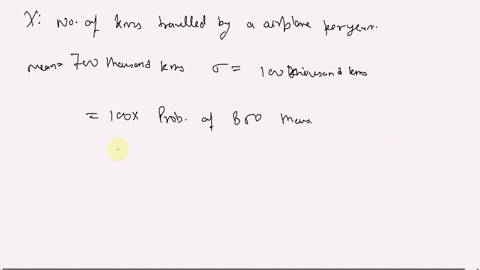 X: No. of kms travelled by a airplane per year.
mean= 700 thousand kms σ = 100 thousand kms
= 100x Prob. of 800